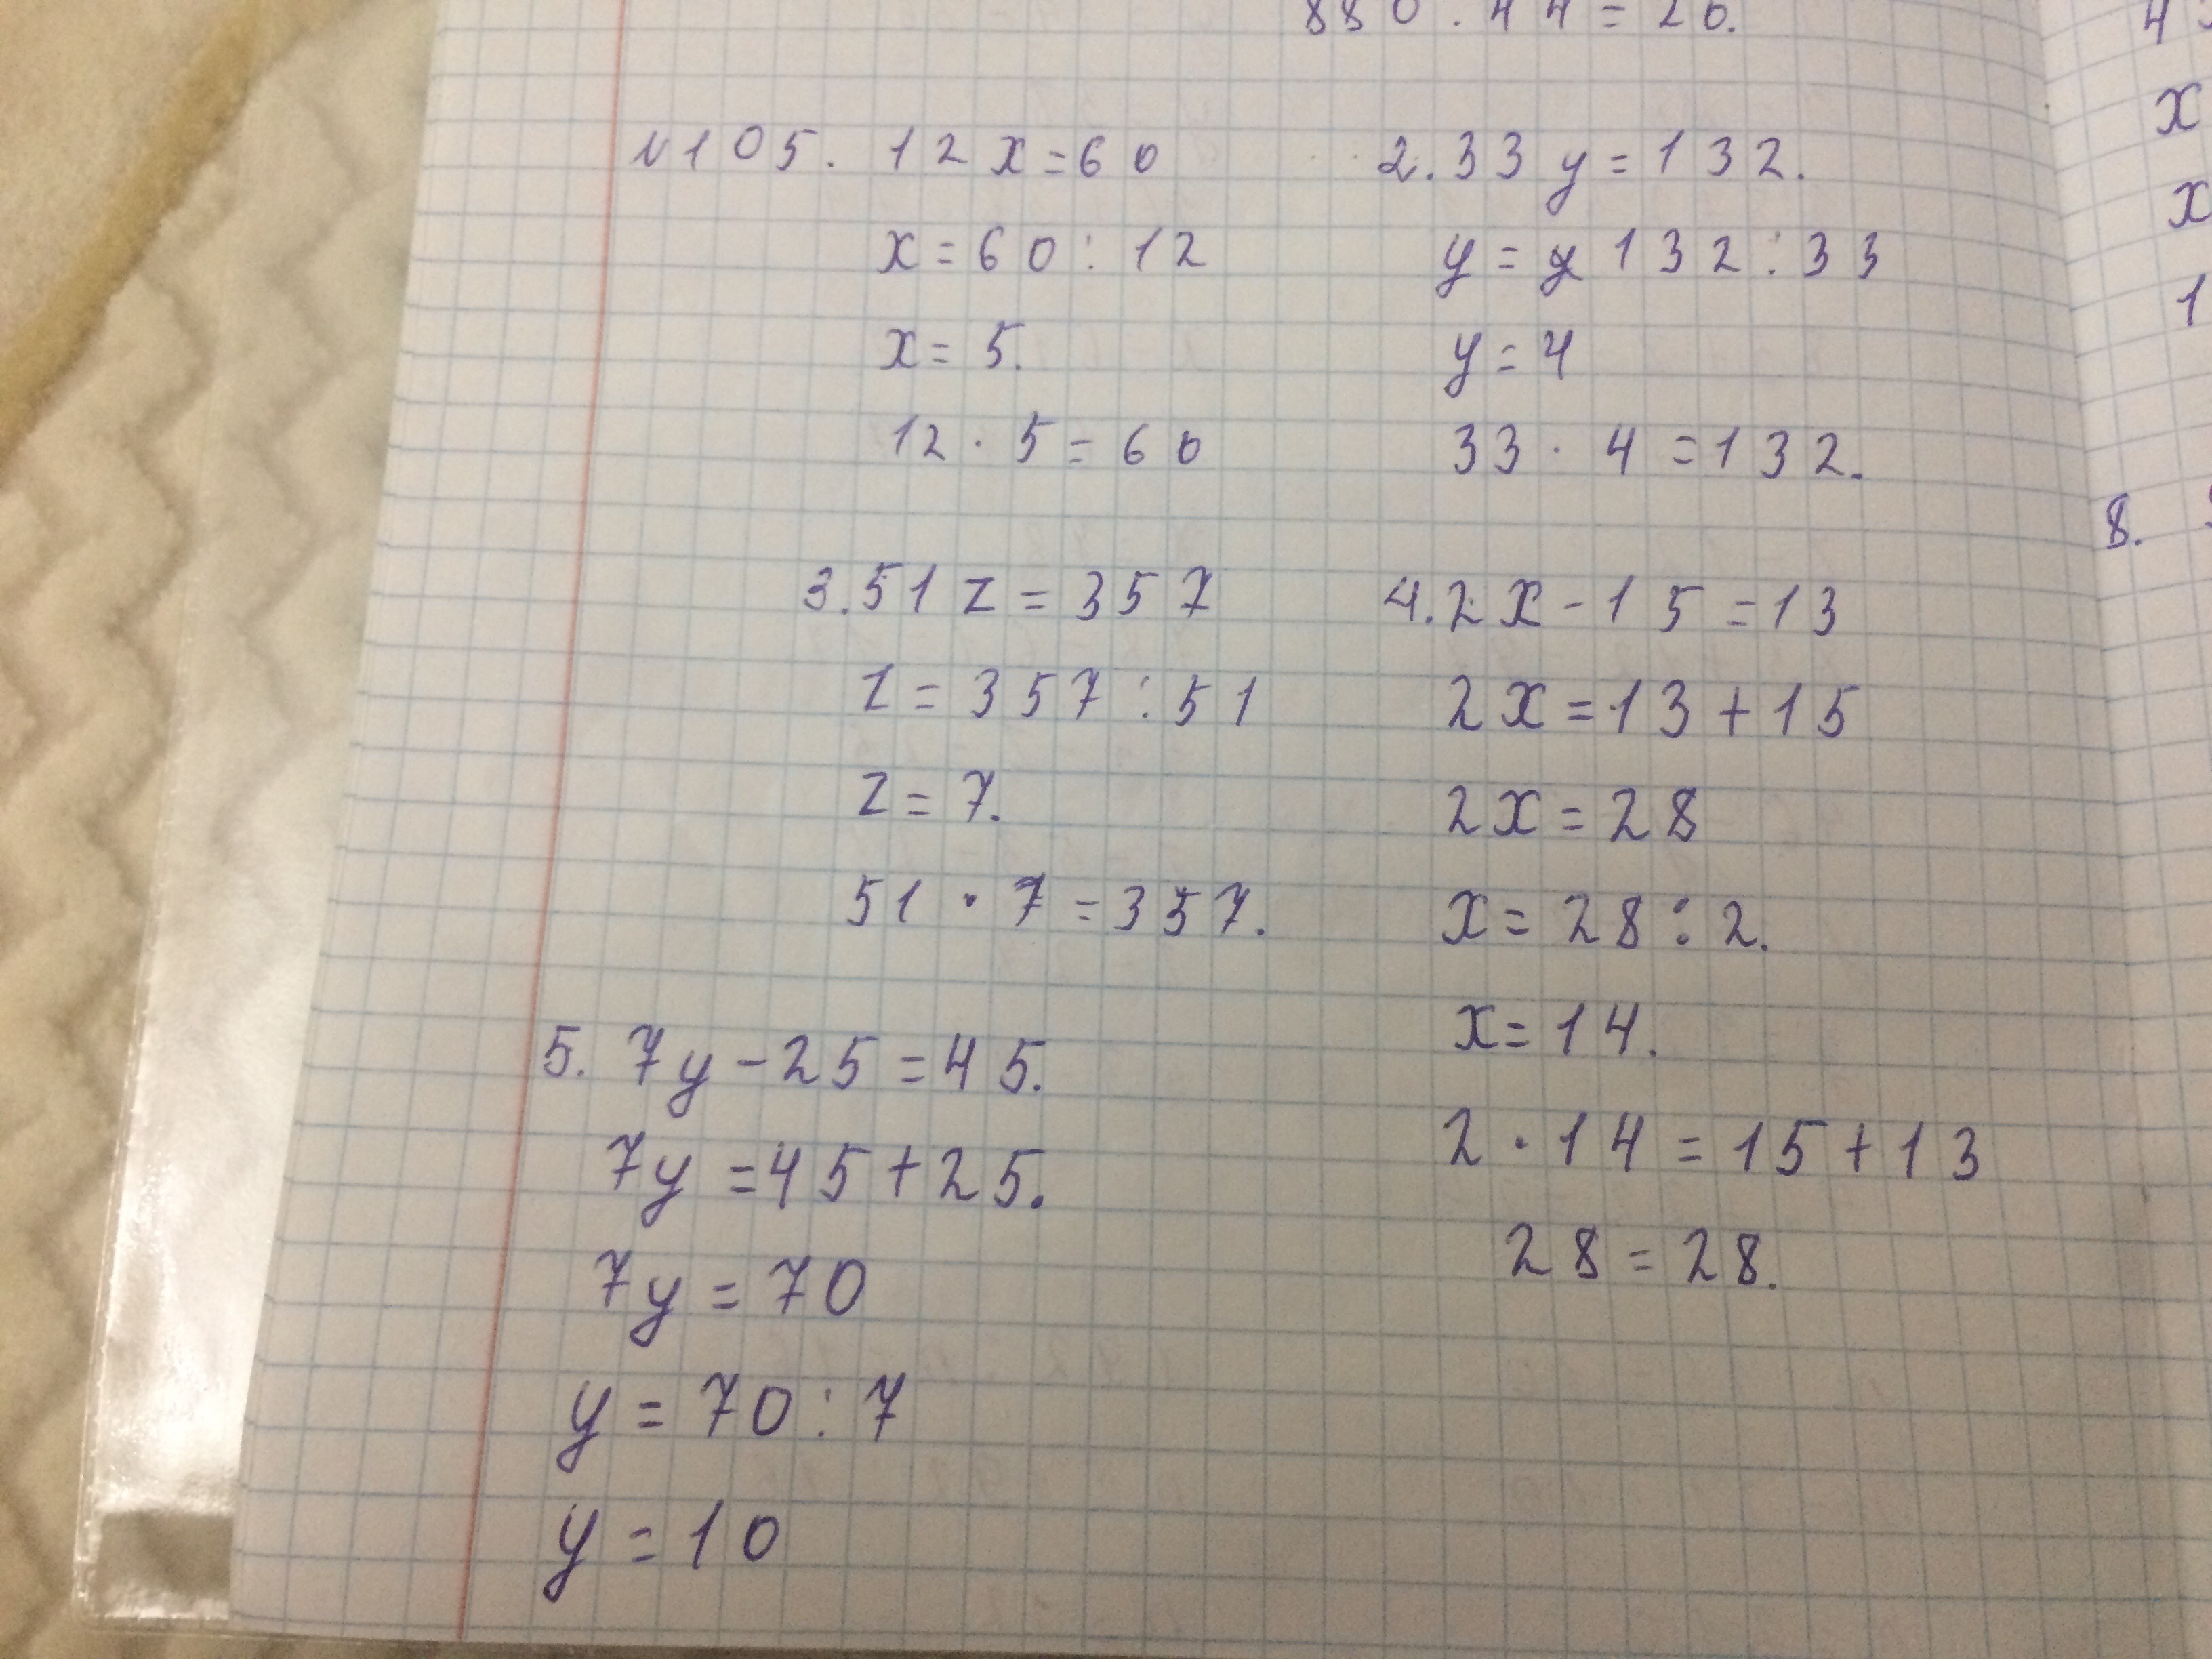 880 : 44 = 20.
N105. 12x=60
x=60:12
x=5.
12·5=60
2. 33y=132.
y=132:33
y=4
33·4=132.
3. 51z=357
z=357:51
z=7.
51·7=357.
4. 2x-15=13
2x=13+15
2x=28
x=28:2.
x=14.
2·14=15+13
28=28.
5. 7y-25=45.
7y=45+25.
7y=70
y=70:7
y=10
x
x
1
8.